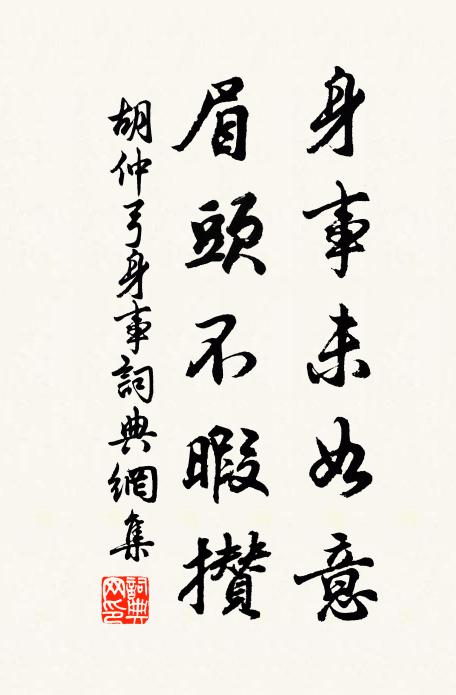 身事未如意
眉頭不暇攢
胡仲弓身事詞典網集
詞典網印